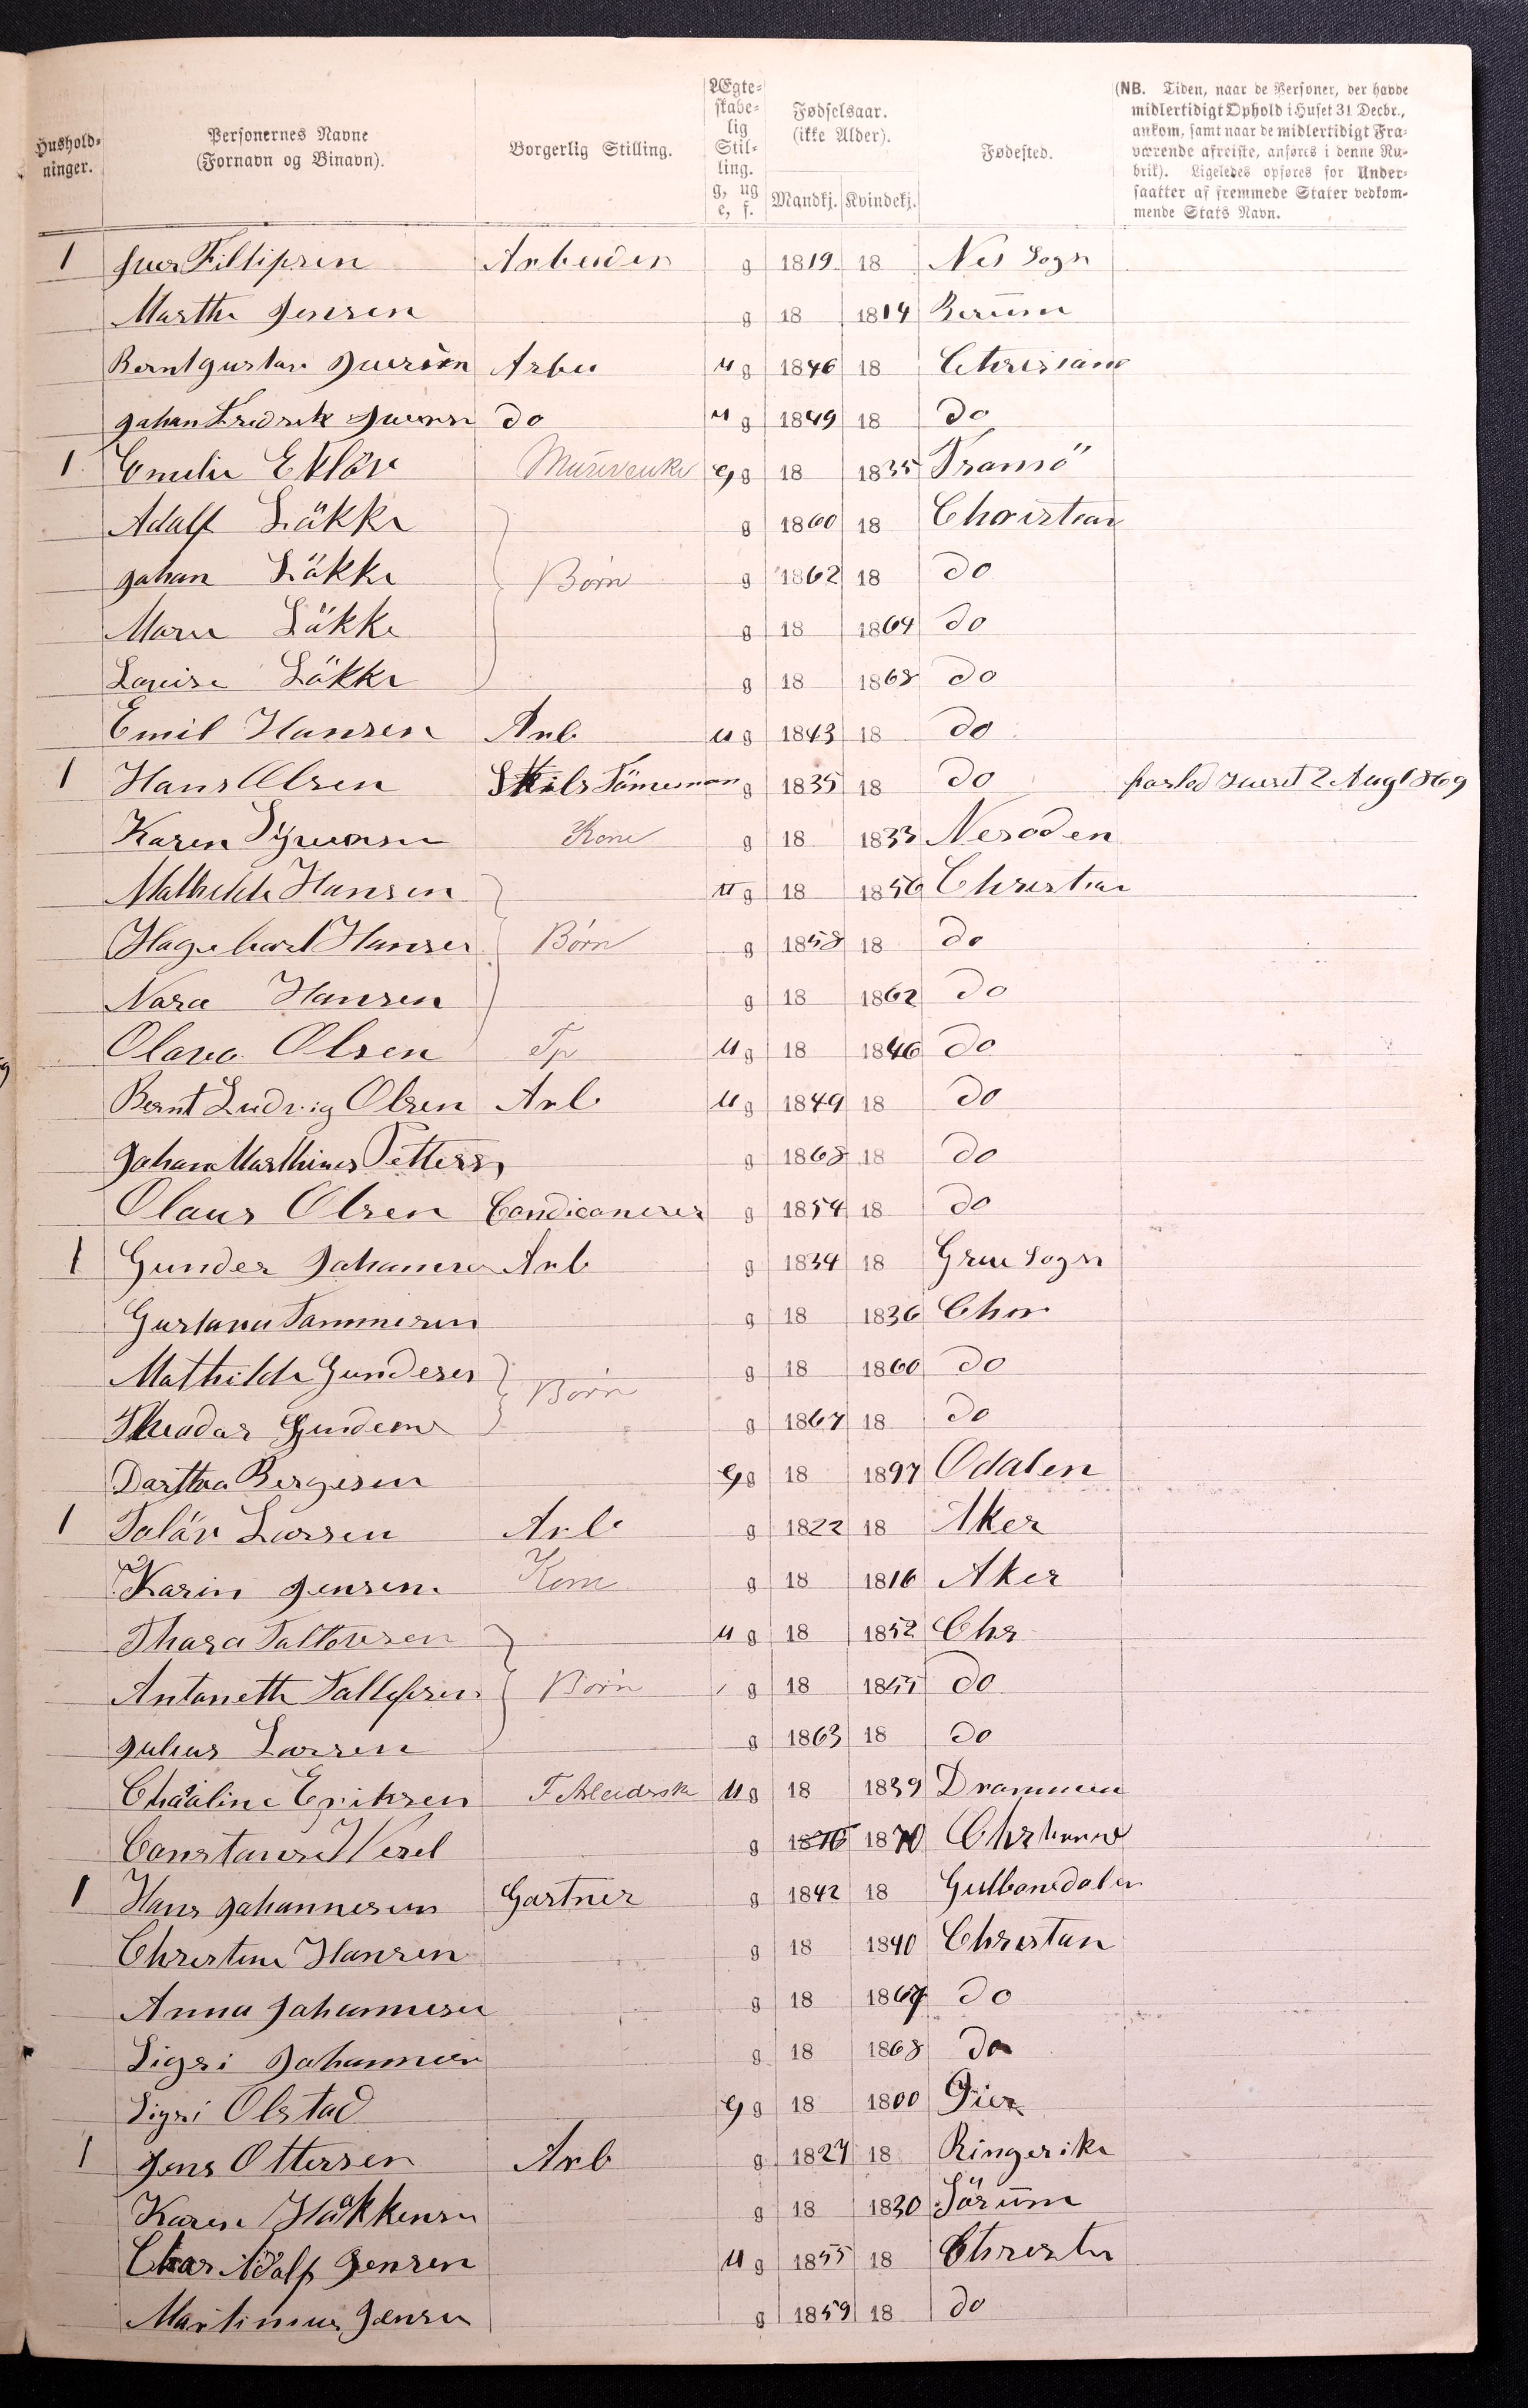 Hushold-
ninger.
Personernes Navne
(Fornavn og Binavn).
Borgerlig Stilling.
Ægte-
skabe-
lig
Stil-
ling.
g, ug
e, f.
Fødselsaar.
(ikke Alder).
Mandkj. Kvindekj.
Fødested.
(NB. Tiden, naar de Personer, der havde
midlertidigt Ophold i Huset 31 Decbr.,
ankom, samt naar de midlertidigt Fra-
værende afreiste, anføres i denne Ru-
brik). Ligeledes opføres for Under-
saatter af fremmede Stater vedkom-
mende Stats Navn.
1 Iver Fillipsen Arbeider g 1819 18 Nes Sogn
Marthe Jensen g 18 1814 Berum
Bernt Gustav Iversen Arbei u g 1846 18 Christiane
Johan Fredrik Iversen do u g 1849 18 do
1 Emelie Eklöv Murerenke e g 18 1835 Tramsö
Adalf Läkke g 1860 18 Christian
Johan Läkke Børn g 1862 18 do
Marie Läkke g 18 1864 do
Lovise Läkke g 18 1868 do
Emil Hansen Arb u g 1843 18 do
1 Hans Olsen Skibs Tömerman g 1835 18 do 2 Aug 1869
Karen Syversen Kone g 18 1833 Nesodden
Mathilde Hansen u g 18 1856 Christian
Hagebart Hansen Børn g 1858 18 do
Nora Hansen g 18 1862 do
Olava Olsen Tp u g 18 1846 do
Bernt Ludvig Olsen Arb u g 1849 18 do
Johan Marthines Petters g 1868 18 do
Olaus Olsen Candicanerer g 1854 18 do
1 Gunder Johansen Arb g 1834 18 Grue Sogn
Gustava Tammesen g 18 1836 Chor
Mathilde Gundesen g 18 1860 do
Theador Gundersen Børn g 1867 18 do
Darthea Bergesen e g 18 1897 Odalen
1 Taläv Larsen Arb g 1822 18 Aker
Karin Jensen Kone g 18 1816 Aker
Thara Tallovsen u g 18 1852 Chr
Antonette Tallefsen Børn g 18 1855 do
Julius Larsen g 1863 18 do
Eriksen F Arbeiderske u g 18 1839 Drammen
Constance Wesel g 1876 1870
1 Hans Johannesen Gartner g 1842 18 Gulbransdalen
Christine Hansen g 18 1840 Christan
Anna Johannesen g 18 1867 do
Sigri Johannesen g 18 1868 do
Sigri Olstad e g 18 1800 Øier
1 Jens Ottersen Arb g 1827 18 Ringerike
Karen Håkkensen g 18 1830 Sörum
Char Adolf Jensen u g 1855 18 Christn
Martinius Jensen g 1859 18 do